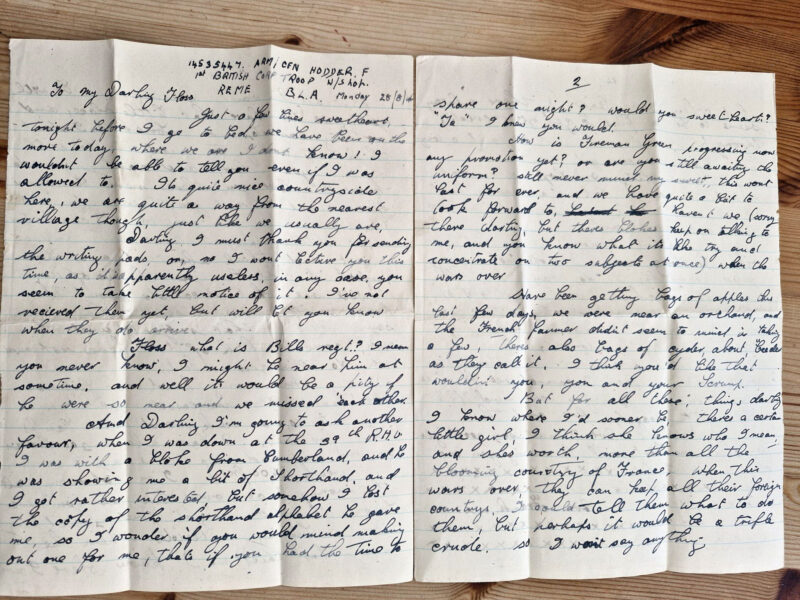 14535447. ARM/CFN HODDER. F
1st BRITISH CORP TROOP W/Shop.
REME B.L.A. Monday 28/8/4
To my Darling Floss
Just a few lines sweetheart,
tonight before I go to bed. we have been on the
move today, where we are I don't know! I
wouldn't be able to tell you even if I was
allowed to. Its quite nice countryside
here, we are quite a way from the nearest
village though, just like we usually are,
Darling I must thank you for sending
the writing pads on, no I wont this
time, as its apparently useless, in any case, you
seem to take little notice of it. I've not
recieved them yet, but will let you know
when they do arrive.
Floss what is Bills regt? I mean
you never know, I might be near him at
sometime, and well it would be a pity if
he were so near and we missed each other
And Darling I'm going to ask another
favour, when I was down at the 39th
I was with a bloke from Cumberland, and he
was showing me a bit of Shorthand, and
I got rather interested but somehow I lost
the copy of the shorthand alphabet he gave
me, so I wonder if you would mind making
out one for me, thats if you had the time to
2
spare one night? would you sweetheart?
"Ta" I knew you would.
How is Fireman Green progressing now
any promotion yet? or are you still awaiting the
uniform? still never mind my sweet, this wont
last for ever, and we have quite a bit to
look forward to, havent we (sorry
there darling, but these blokes keep on talking to
me, and you know what its like try and
concentrate on two subjects at once) when the
wars over
Have been getting bags of apples this
last few days, we were near an orchard, and
the French farmer didn't seem to mind in taking
a few, theres also bags of cyder about,
as they call it. I think you'd like that
wouldn't you, you and your Scrump.
But for all these things darling
I know where I'd sooner be, theres a certain
little girl, I think she knows who I mean,
and shes worth, more than all the
blooming country of France. when this
wars over, they can keep all their foreign
countrys, I could tell them what to do
them, but perhaps it would be a trifle
crude. so I wont say anything